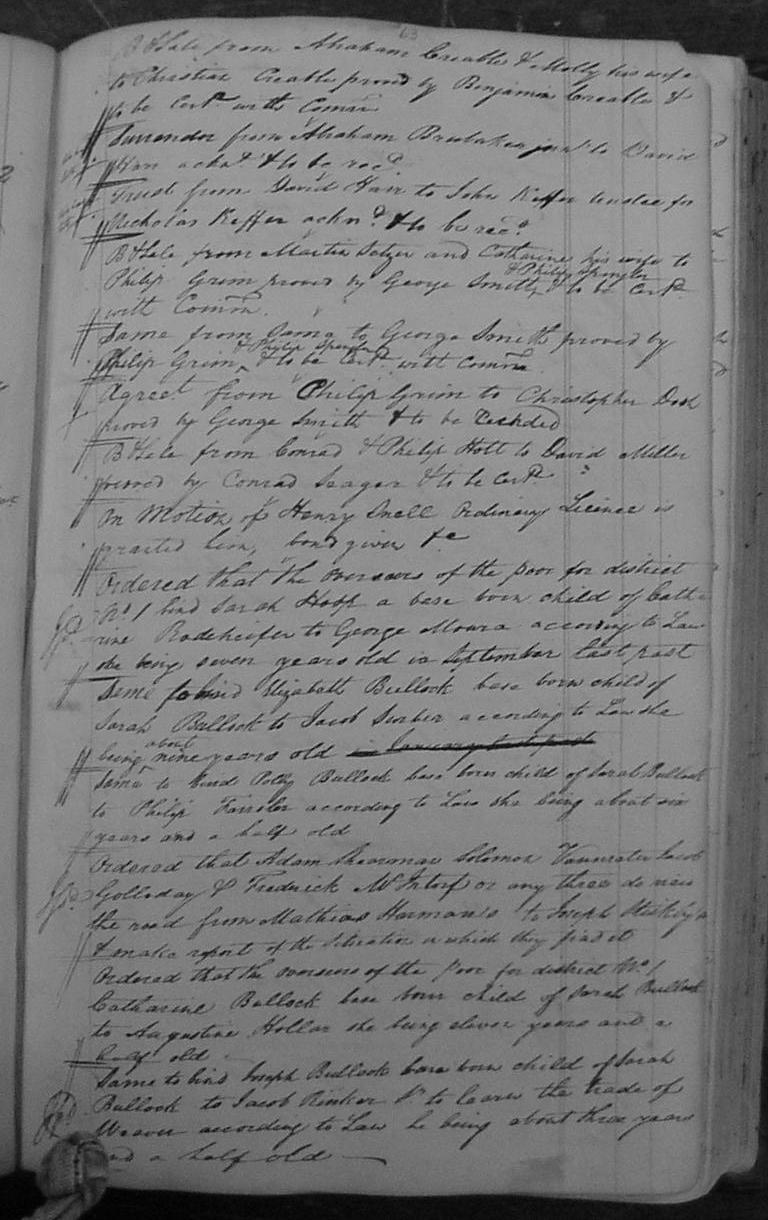 63
B & Sale from Abraham Creable & Molly his wife
to Christian Creable proved by Benjamin Creable &
to be Cert.d with Comn
Surrender from Abraham Brubaker junr to David
Harr acknd & to be recd
Trust from David Harr to John Keffer trustee for
Nicholas Keffer acknd & to be recd
B & Sale from Martin Setzer and Catharine his wife to
Philip Grim proved by George Smith & Philip Spengler & to be Certd
with Comn.
Same from Same to George Smith proved by
Philip Grim & Philip Spengler & to be Certd with Comn
Agreet from Philip Grim to Christopher Dosh
proved by George Smith & to be Recorded
B & Sale from Conrad & Philip Holt to David Miller
proved by Conrad Seager & to be Certd
On Motion of Henry Snell Ordinary Licence is
granted him, bond given &c
Ordered that the overseers of the poor for district
No 1 bind Sarah Hobb a base born child of Catha
rine Rodeheifer to George Moura according to Law
she being seven years old in September last past
Same to bind Elizabeth Bullock base born child of
Sarah Bullock to Jacob according to Law she
being about nine years old in January last past
Same to bind Polly Bullock base born child of Sarah Bullock
to Philip according to Law she being about six
years and a half old
Ordered that Adam Shearman Solomon Vanmeter Jacob
Golladay & Frederick or any three do view
the road from Mathias Harman's to Joseph
& make report of the Situation in which they find it
Ordered that the overseers of the Poor for district No 1
Catharine Bullock base born child of Sarah Bullock
to Augustine Hollar she being eleven years and a
half old
Same to bind Joseph Bullock base born child of Sarah
Bullock to Jacob Rinker Sr to learn the trade of
Weaver according to Law he being about three years
and a half old